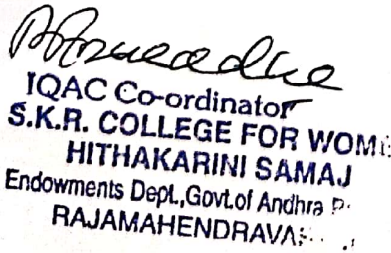 IQAC Co-ordinator
S.K.R. COLLEGE FOR WOME
HITHAKARINI SAMAJ
Endowments Dept.,Govt.of Andhra P
RAJAMAHENDRAVA